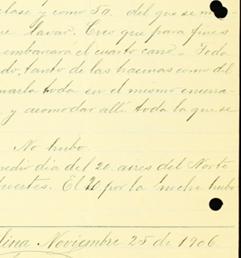 clase y como 50 del que se
lavar. Creo que para fines
embarcará el cuarto carro. Todo
do, tanto de las haciendas como del
toda en el mismo
y acomodar allí toda la que se
No hubo.
medio dia del 20 aires del Norte
fuertes. El 20 por la noche hubo
lina Noviembre 25 de 1906